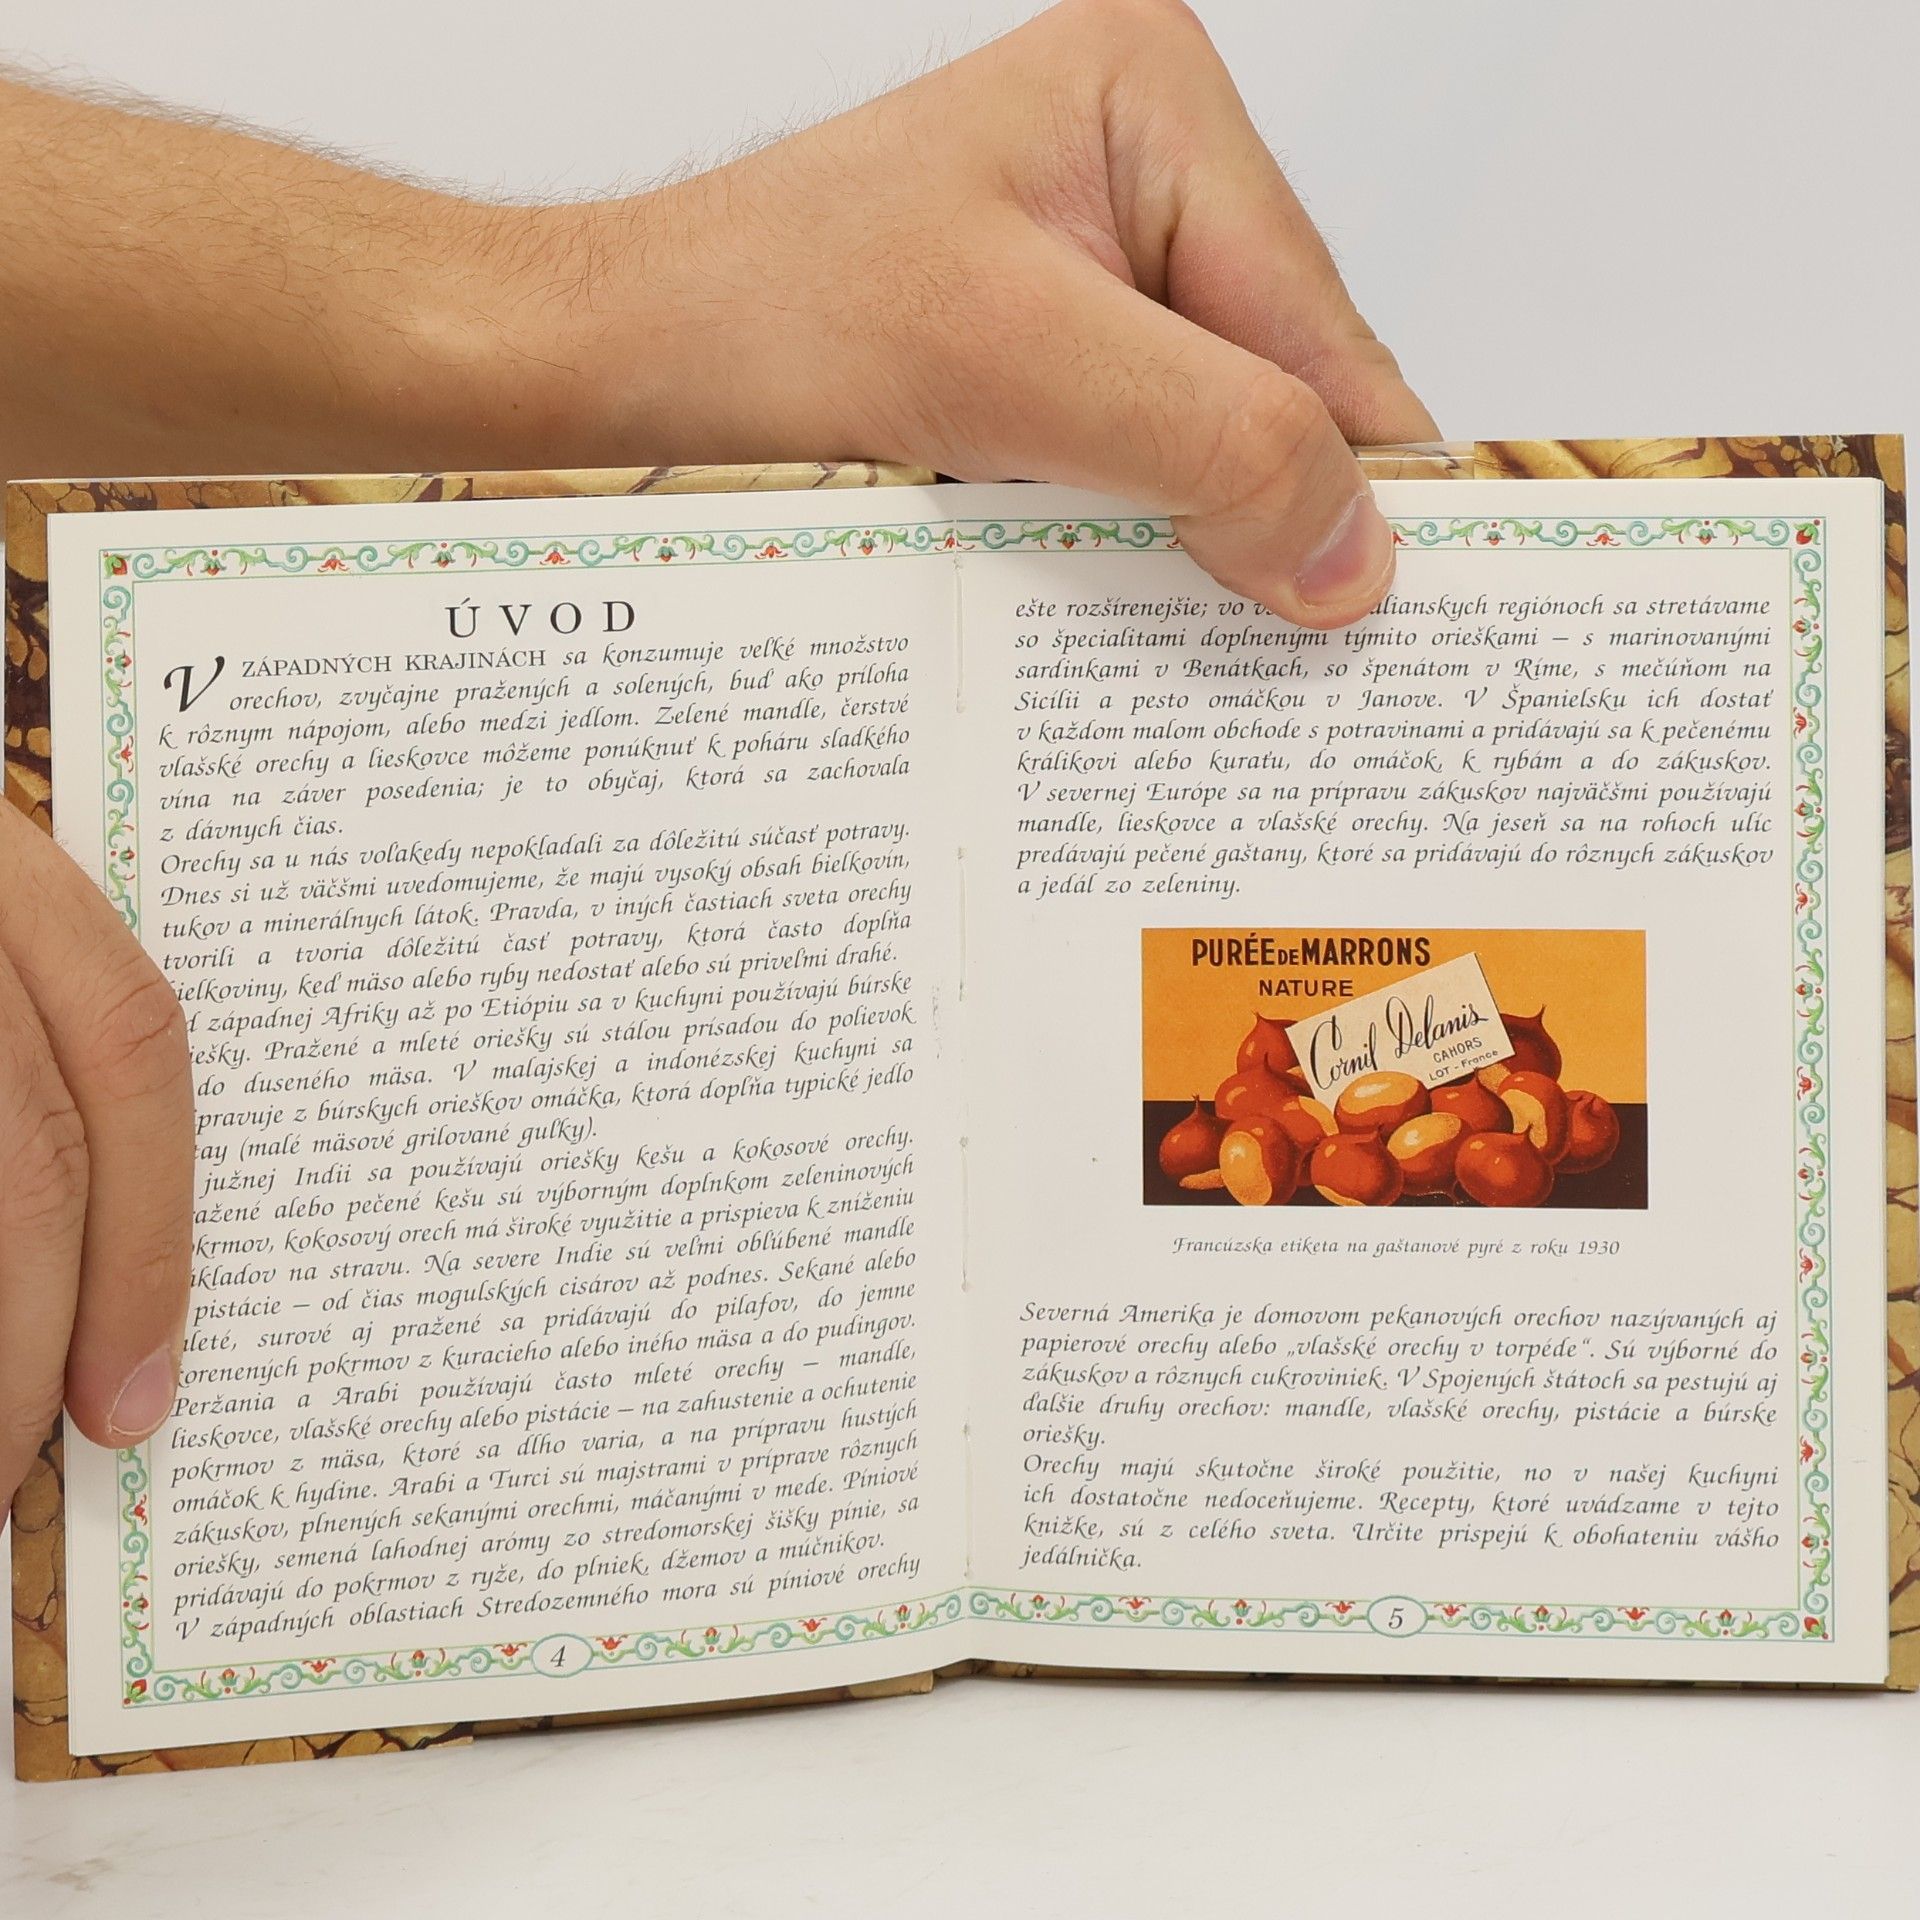 ÚVOD
V ZÁPADNÝCH KRAJINÁCH sa konzumuje veľké množstvo
orechov, zvyčajne pražených a solených, buď ako príloha
k rôznym nápojom, alebo medzi jedlom. Zelené mandle, čerstvé
vlašské orechy a lieskovce môžeme ponúknuť k poháru sladkého
vína na záver posedenia; je to obyčaj, ktorá sa zachovala
z dávnych čias.
Orechy sa u nás voľakedy nepokladali za dôležitú súčasť potravy.
Dnes si už väčšmi uvedomujeme, že majú vysoký obsah bielkovín,
tukov a minerálnych látok. Pravda, v iných častiach sveta orechy
tvorili a tvoria dôležitú časť potravy, ktorá často dopĺňa
bielkoviny, keď mäso alebo ryby nedostať alebo sú priveľmi drahé.
západnej Afriky až po Etiópiu sa v kuchyni používajú búrske
iešky. Pražené a mleté oriešky sú stálou prísadou do polievok
do duseného mäsa. V malajskej a indonézskej kuchyni sa
ipravuje z búrskych orieškov omáčka, ktorá dopĺňa typické jedlo
tay (malé mäsové grilované guľky).
južnej Indii sa používajú oriešky kešu a kokosové orechy.
ažené alebo pečené kešu sú výborným doplnkom zeleninových
okrmov, kokosový orech má široké využitie a prispieva k zníženiu
ákladov na stravu. Na severe Indie sú veľmi obľúbené mandle
pistácie – od čias mogulských cisárov až podnes. Sekané alebo
mleté, surové aj pražené sa pridávajú do pilafov, do jemne
korenených pokrmov z kuracieho alebo iného mäsa a do pudingov.
Peržania a Arabi používajú často mleté orechy – mandle,
lieskovce, vlašské orechy alebo pistácie – na zahustenie a ochutenie
pokrmov z mäsa, ktoré sa dlho varia, a na prípravu hustých
omáčok k hydine. Arabi a Turci sú majstrami v príprave rôznych
zákuskov, plnených sekanými orechmi, máčanými v mede. Píniové
oriešky, semená lahodnej arómy zo stredomorskej šišky pínie, sa
pridávajú do pokrmov z ryže, do plniek, džemov a múčnikov.
V západných oblastiach Stredozemného mora sú píniové orechy
4
ešte rozšírenejšie; vo alianskych regiónoch sa stretávame
so špecialitami doplnenými týmito orieškami – s marinovanými
sardinkami v Benátkach, so špenátom v Ríme, s mečúňom na
Sicílii a pesto omáčkou v Janove. V Španielsku ich dostať
v každom malom obchode s potravinami a pridávajú sa k pečenému
králikovi alebo kuraťu, do omáčok, k rybám a do zákuskov.
V severnej Európe sa na prípravu zákuskov najväčšmi používajú
mandle, lieskovce a vlašské orechy. Na jeseň sa na rohoch ulíc
predávajú pečené gaštany, ktoré sa pridávajú do rôznych zákuskov
a jedál zo zeleniny.
PURÉE DE MARRONS
NATURE
Cornil Delanis
CAHORS
LOT - France
Francúzska etiketa na gaštanové pyré z roku 1930
Severná Amerika je domovom pekanových orechov nazývaných aj
papierové orechy alebo „vlašské orechy v torpéde“. Sú výborné do
zákuskov a rôznych cukroviniek. V Spojených štátoch sa pestujú aj
ďalšie druhy orechov: mandle, vlašské orechy, pistácie a búrske
oriešky.
Orechy majú skutočne široké použitie, no v našej kuchyni
ich dostatočne nedoceňujeme. Recepty, ktoré uvádzame v tejto
knižke, sú z celého sveta. Určite prispejú k obohateniu vášho
jedálnička.
5